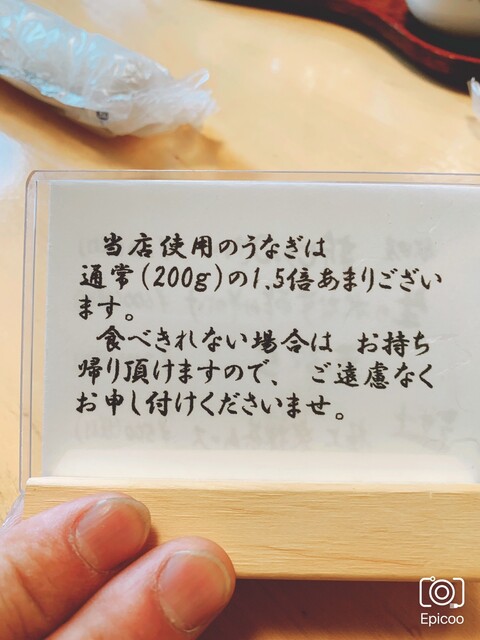 当店使用のうなぎは
通常(200g)の1.5倍あまりござい
ます。
食べきれない場合は お持ち
帰り頂けますので、ご遠慮なく
お申し付けくださいませ。
Epicoo